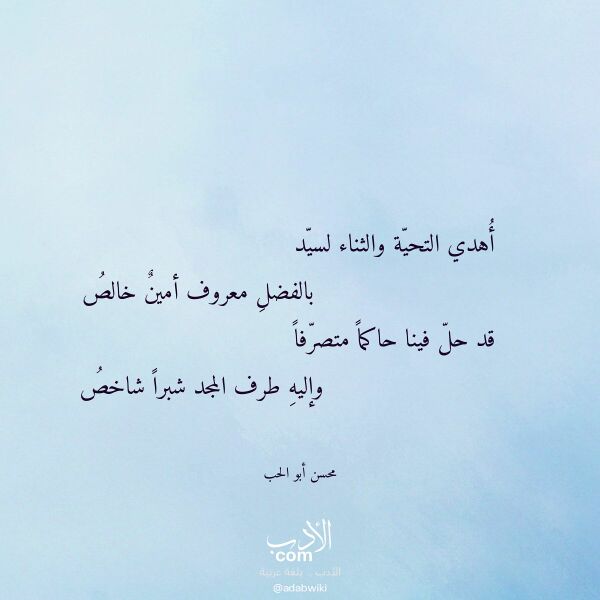 أُهدي التحيّة والثناء لسيّد
بالفضلِ معروف أمينٌ خالصُ
قد حلّ فينا حاكماً متصرّفاً
وإليهِ طرف المجد شبراً شاخصُ
محسن أبو الحب
الأدب
com
الأدب .. بلغة عربية
@adabwiki